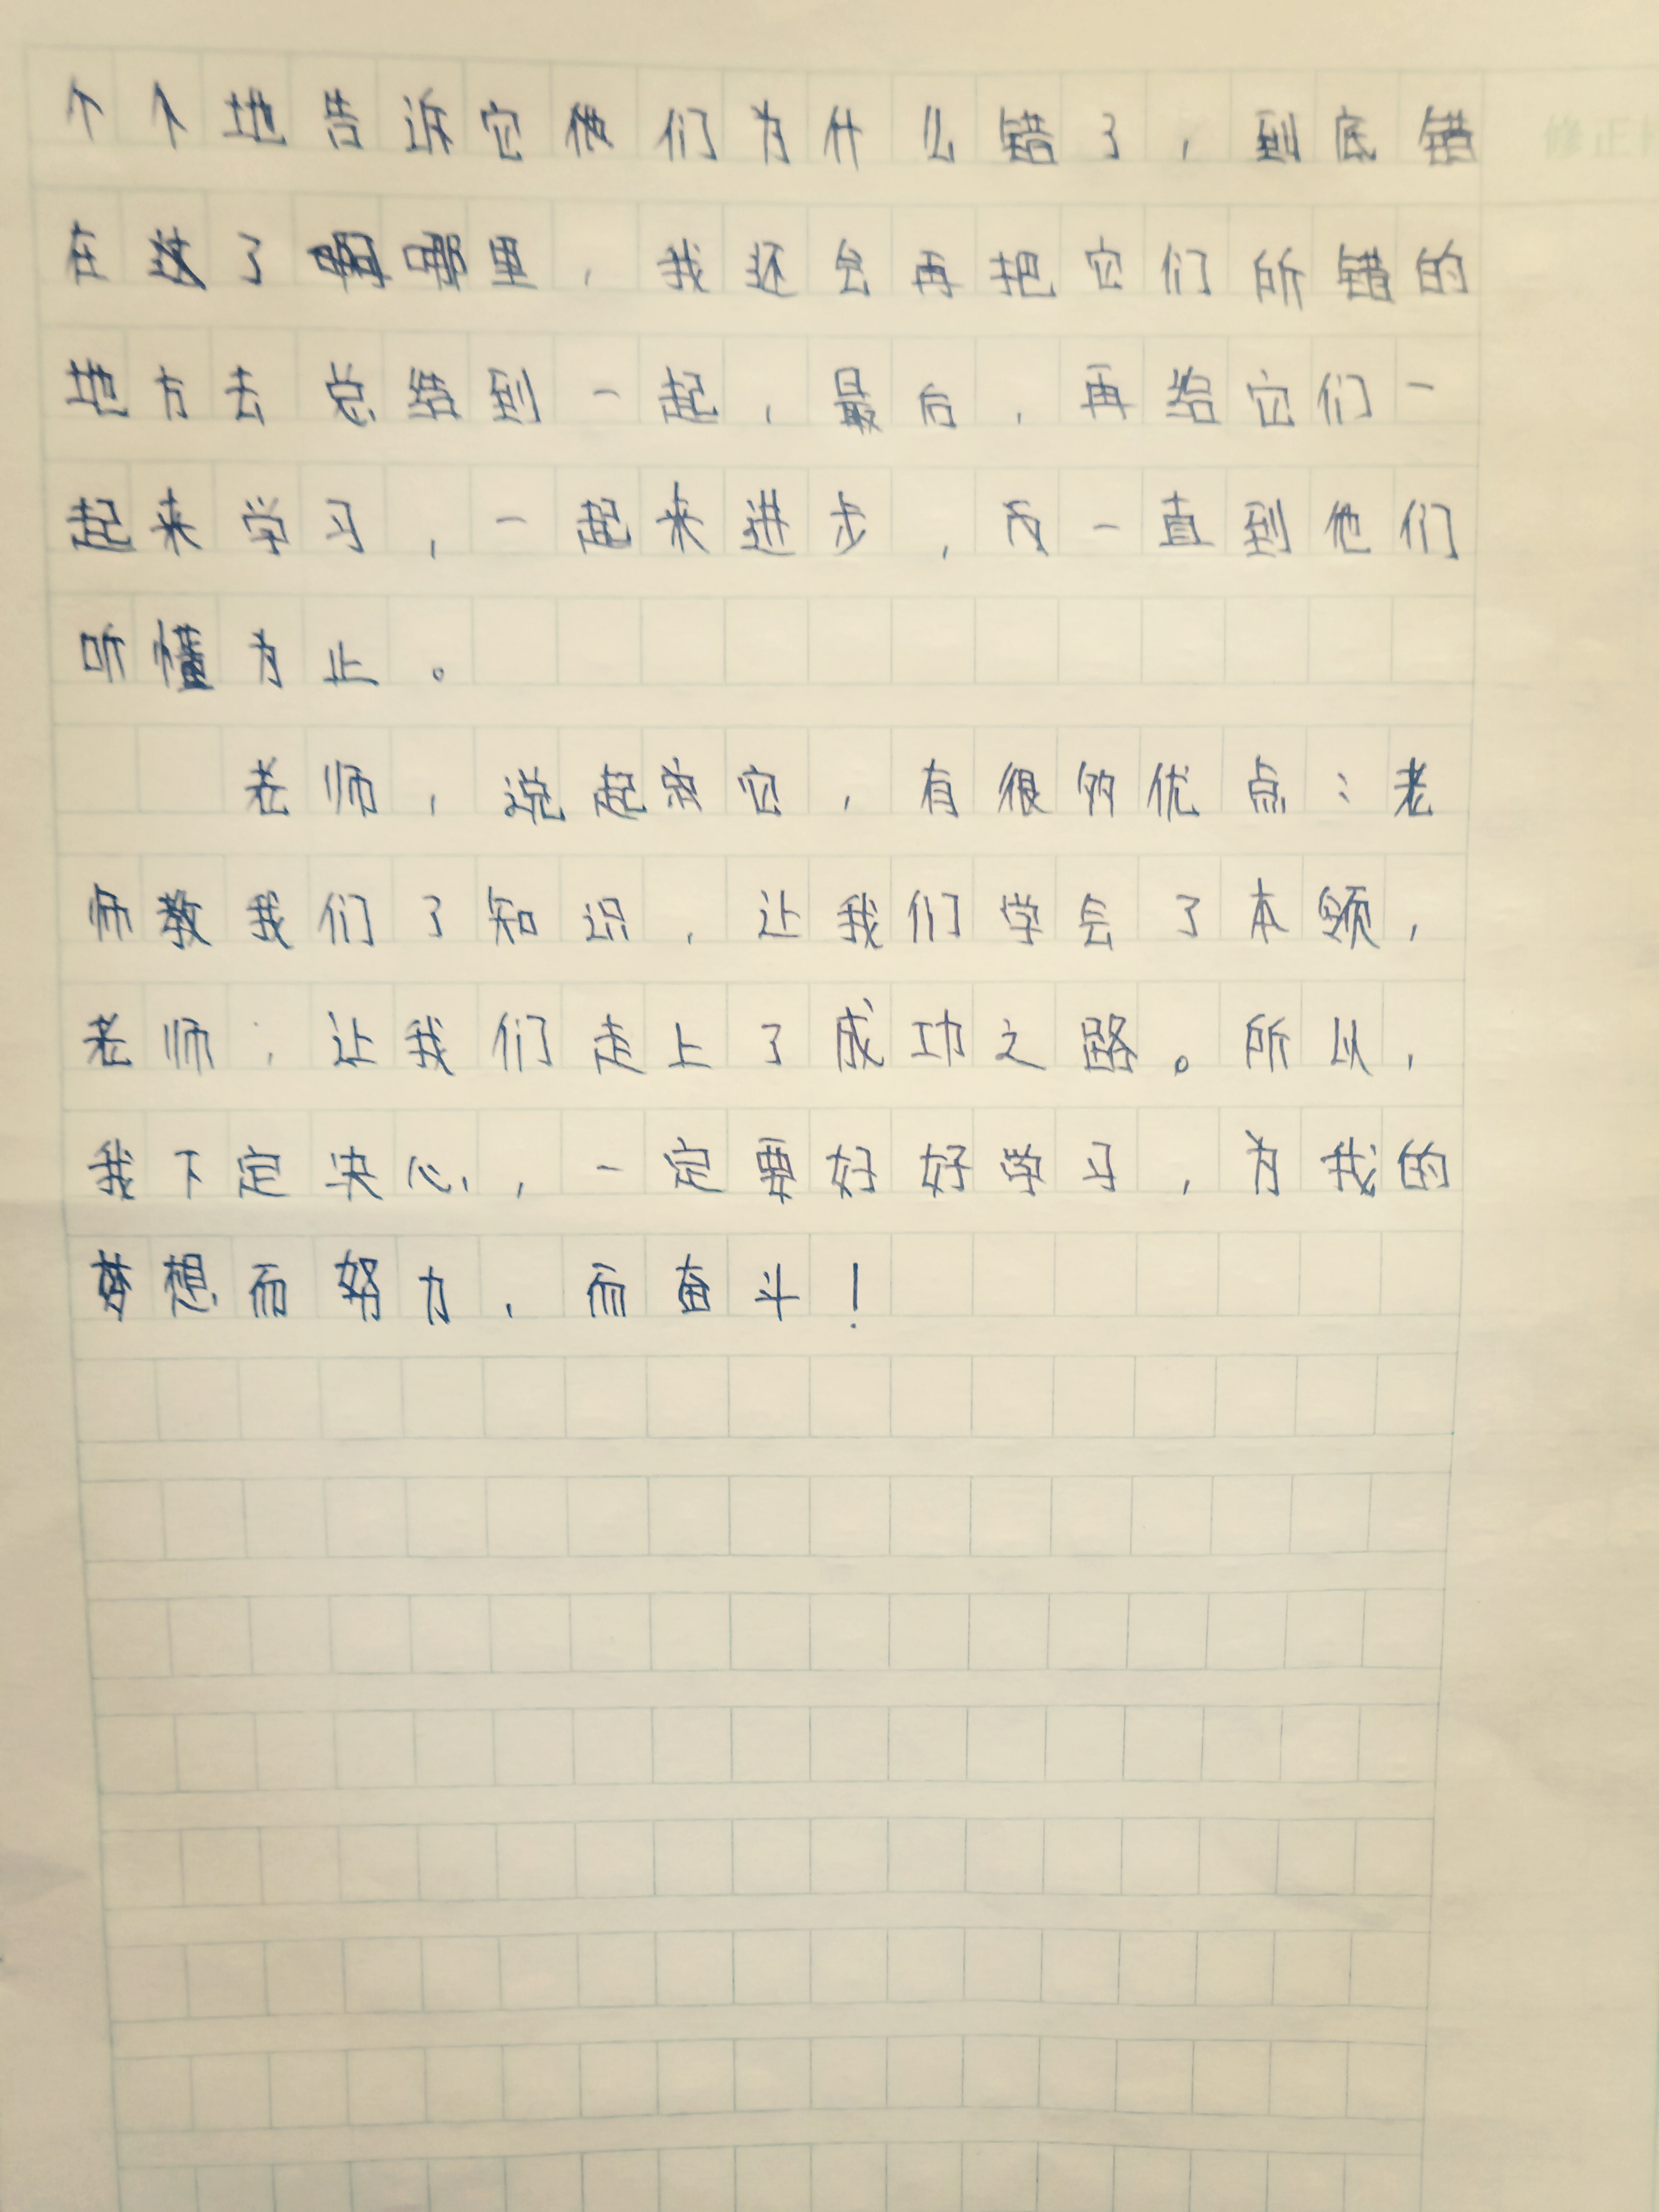 个个地告诉它他们为什么错了，到底错
在这了啊哪里，我还会再把它们所错的
地方去总结到一起，最后，再给它们一
起来学习，一起来进步，一直到他们
听懂为止。
老师，说起来它，有很多优点：老
师教我们了知识，让我们学会了本领，
老师，让我们走上了成功之路。所以，
我下定决心，一定要好好学习，为我的
梦想而努力，而奋斗！
修正